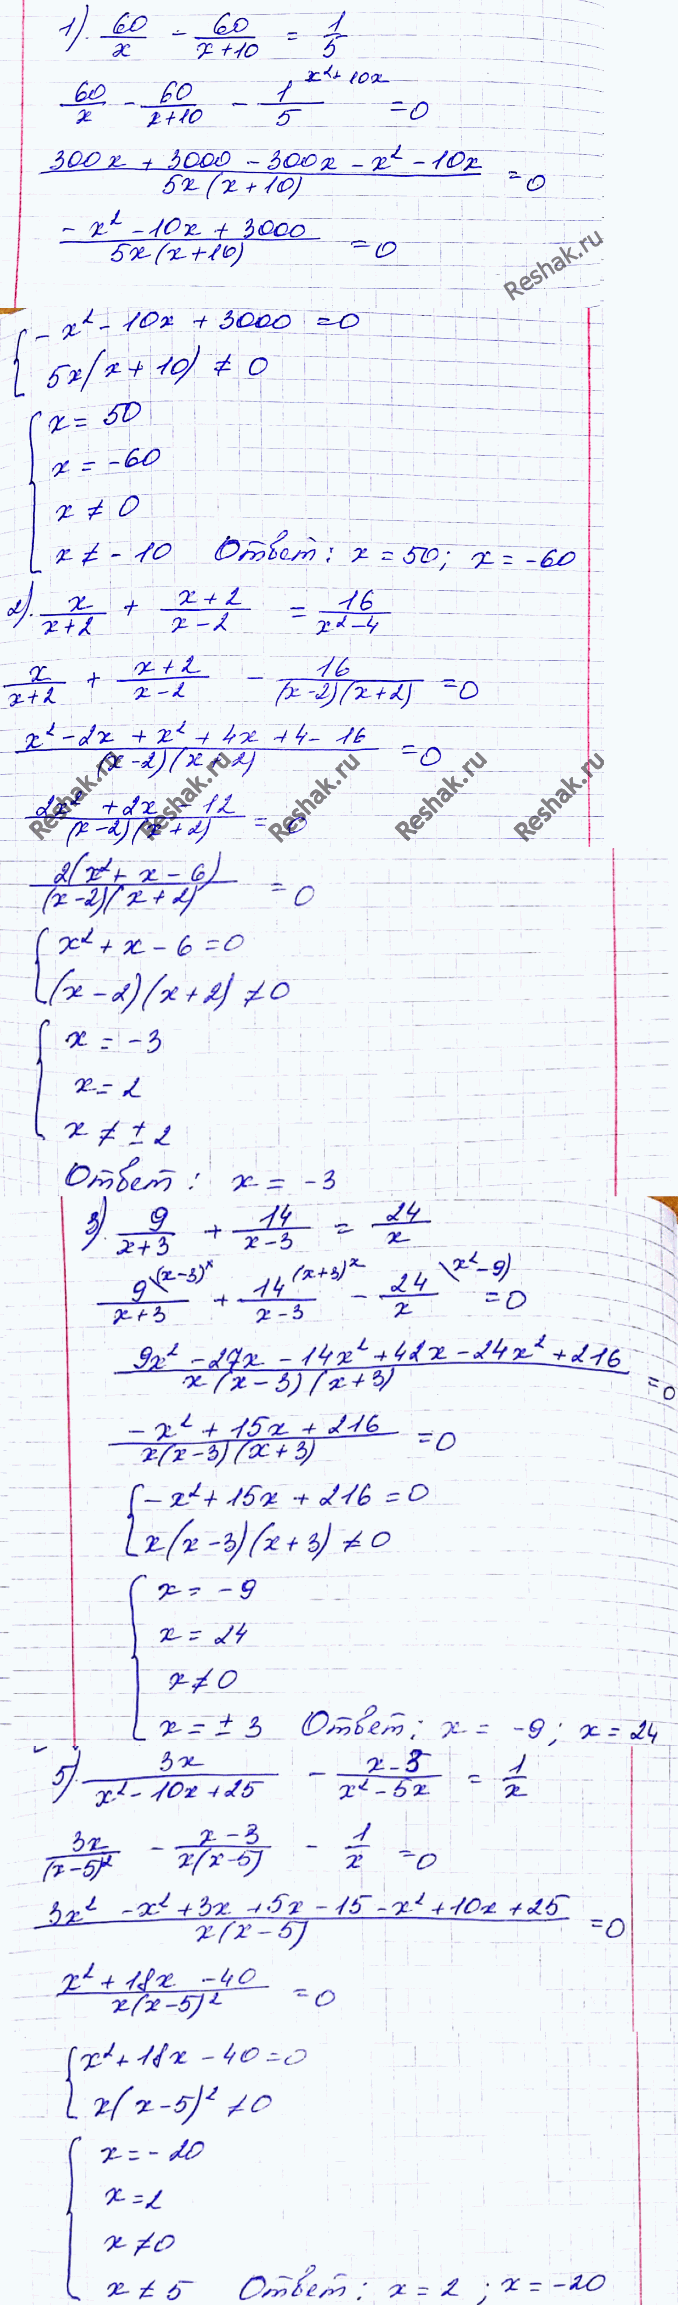 1). 60/x - 60/(x+10) = 1/5
60/x - 60/(x+10) - 1/5 x²+10x = 0
(300x + 3000 - 300x - x² - 10x)/(5x(x+10)) = 0
(-x² - 10x + 3000)/(5x(x+10)) = 0
Reshak.ru
{-x² - 10x + 3000 = 0
5x(x+10) ≠ 0
{x = 50
x = -60
x ≠ 0
x ≠ -10 Ответ: x = 50; x = -60
2). x/(x+2) + (x+2)/(x-2) = 16/(x²-4)
x/(x+2) + (x+2)/(x-2) - 16/((x-2)(x+2)) = 0
(x² - 2x + x² + 4x + 4 - 16)/((x-2)(x+2)) = 0
Reshak.ru Reshak.ru Reshak.ru Reshak.ru Reshak.ru
(2x² + 2x - 12)/((x-2)(x+2)) = 0
2(x² + x - 6)/((x-2)(x+2)) = 0
{x² + x - 6 = 0
(x-2)(x+2) ≠ 0
{x = -3
x = 2
x ≠ ±2
Ответ: x = -3
3). 9/(x+3) + 14/(x-3) = 24/x
9\(x-3)x/(x+3) + 14(x+3)x/(x-3) - 24\(x²-9)/x = 0
(9x² - 27x - 14x² + 42x - 24x² + 216)/(x(x-3)(x+3)) = 0
(-x² + 15x + 216)/(x(x-3)(x+3)) = 0
{-x² + 15x + 216 = 0
x(x-3)(x+3) ≠ 0
{x = -9
x = 24
x ≠ 0
x = ±3 Ответ: x = -9; x = 24
5). 3x/(x²-10x+25) - (x-3)/(x²-5x) = 1/x
3x/(x-5)² - (x-3)/(x(x-5)) - 1/x = 0
(3x² - x² + 3x + 5x - 15 - x² + 10x + 25)/(x(x-5)) = 0
(x² + 18x - 40)/(x(x-5)²) = 0
{x² + 18x - 40 = 0
x(x-5)² ≠ 0
{x = -20
x = 2
x ≠ 0
x ≠ 5 Ответ: x = 2; x = -20